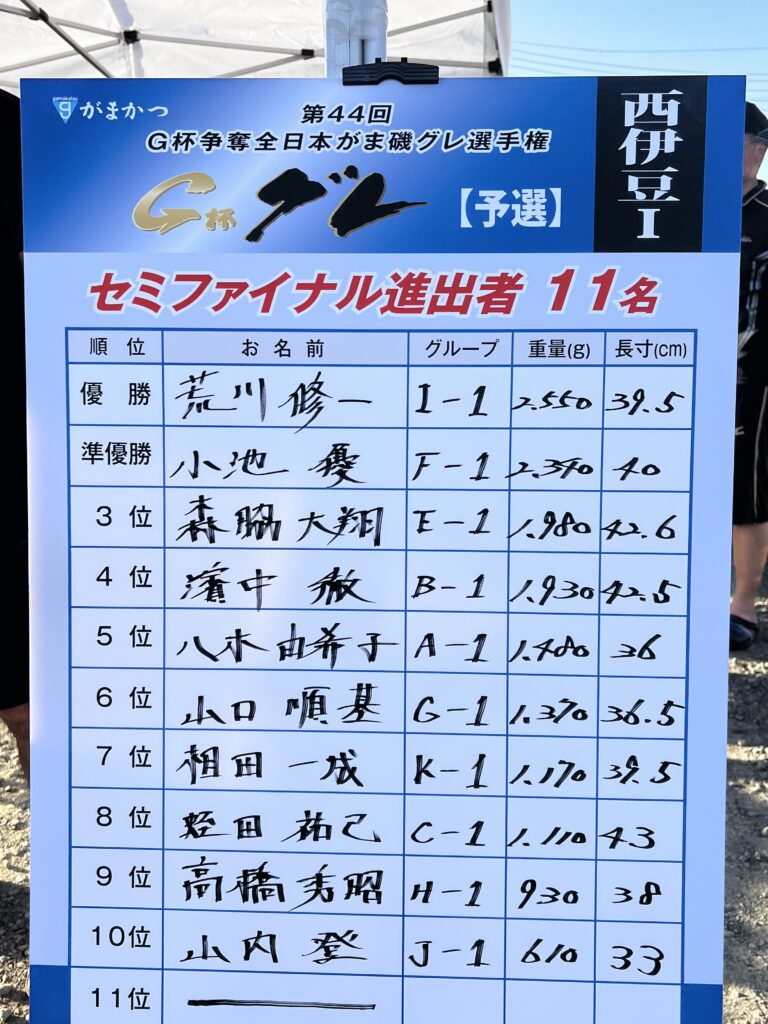 gamakatsu
がまかつ
第44回
G杯争奪全日本がま磯グレ選手権
G杯 グレ 【予選】
西伊豆I
セミファイナル進出者 11名
順位 お名前 グループ 重量(g) 長寸(cm)
優勝 荒川修一 I-1 2.550 39.5
準優勝 小池優 F-1 2.390 40
3位 森脇大翔 E-1 1.980 42.6
4位 濱中徹 B-1 1.930 42.5
5位 八木由希子 A-1 1.480 36
6位 山口順基 G-1 1.370 36.5
7位 相田一成 K-1 1.170 39.5
8位 蛭田祐己 C-1 1.110 43
9位 高橋秀昭 H-1 930 38
10位 山内登 J-1 610 33
11位